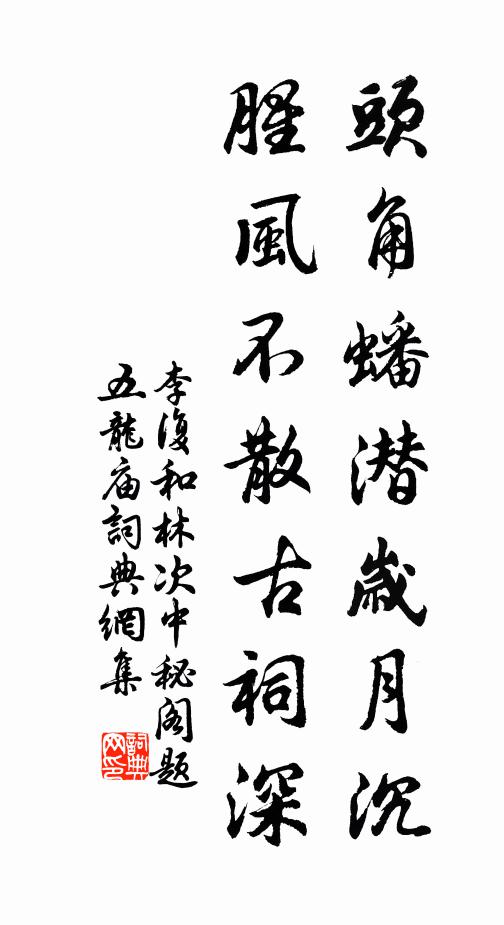 頭角蟠潜歲月沉
腥風不散古祠深
李復和林次中秘阁题
五龍庙詞典網集
詞典網印